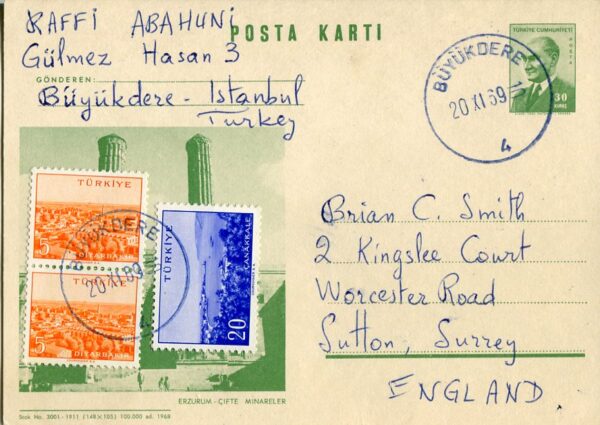 RAFFI ABAHUNI
POSTA KARTI
Gülmez Hasan 3
GÖNDEREN:
Büyükdere - Istanbul
Turkey
TÜRKİYE CUMHURİYETİ
POSTA
30
KURUŞ
BÜYÜKDERE
20 XI 69 10
4
TÜRKİYE
5
DİYARBAKIR
TÜRKİYE
5
DİYARBAKIR
TÜRKİYE
ÇANAKKALE
20
BÜYÜKDERE
20 XI 69
Brian C. Smith
2 Kingslee Court
Worcester Road
Sutton, Surrey
ENGLAND.
ERZURUM - ÇİFTE MİNARELER
Stok No. 3001-1911 (148 X 105) 100.000 ad. 1968